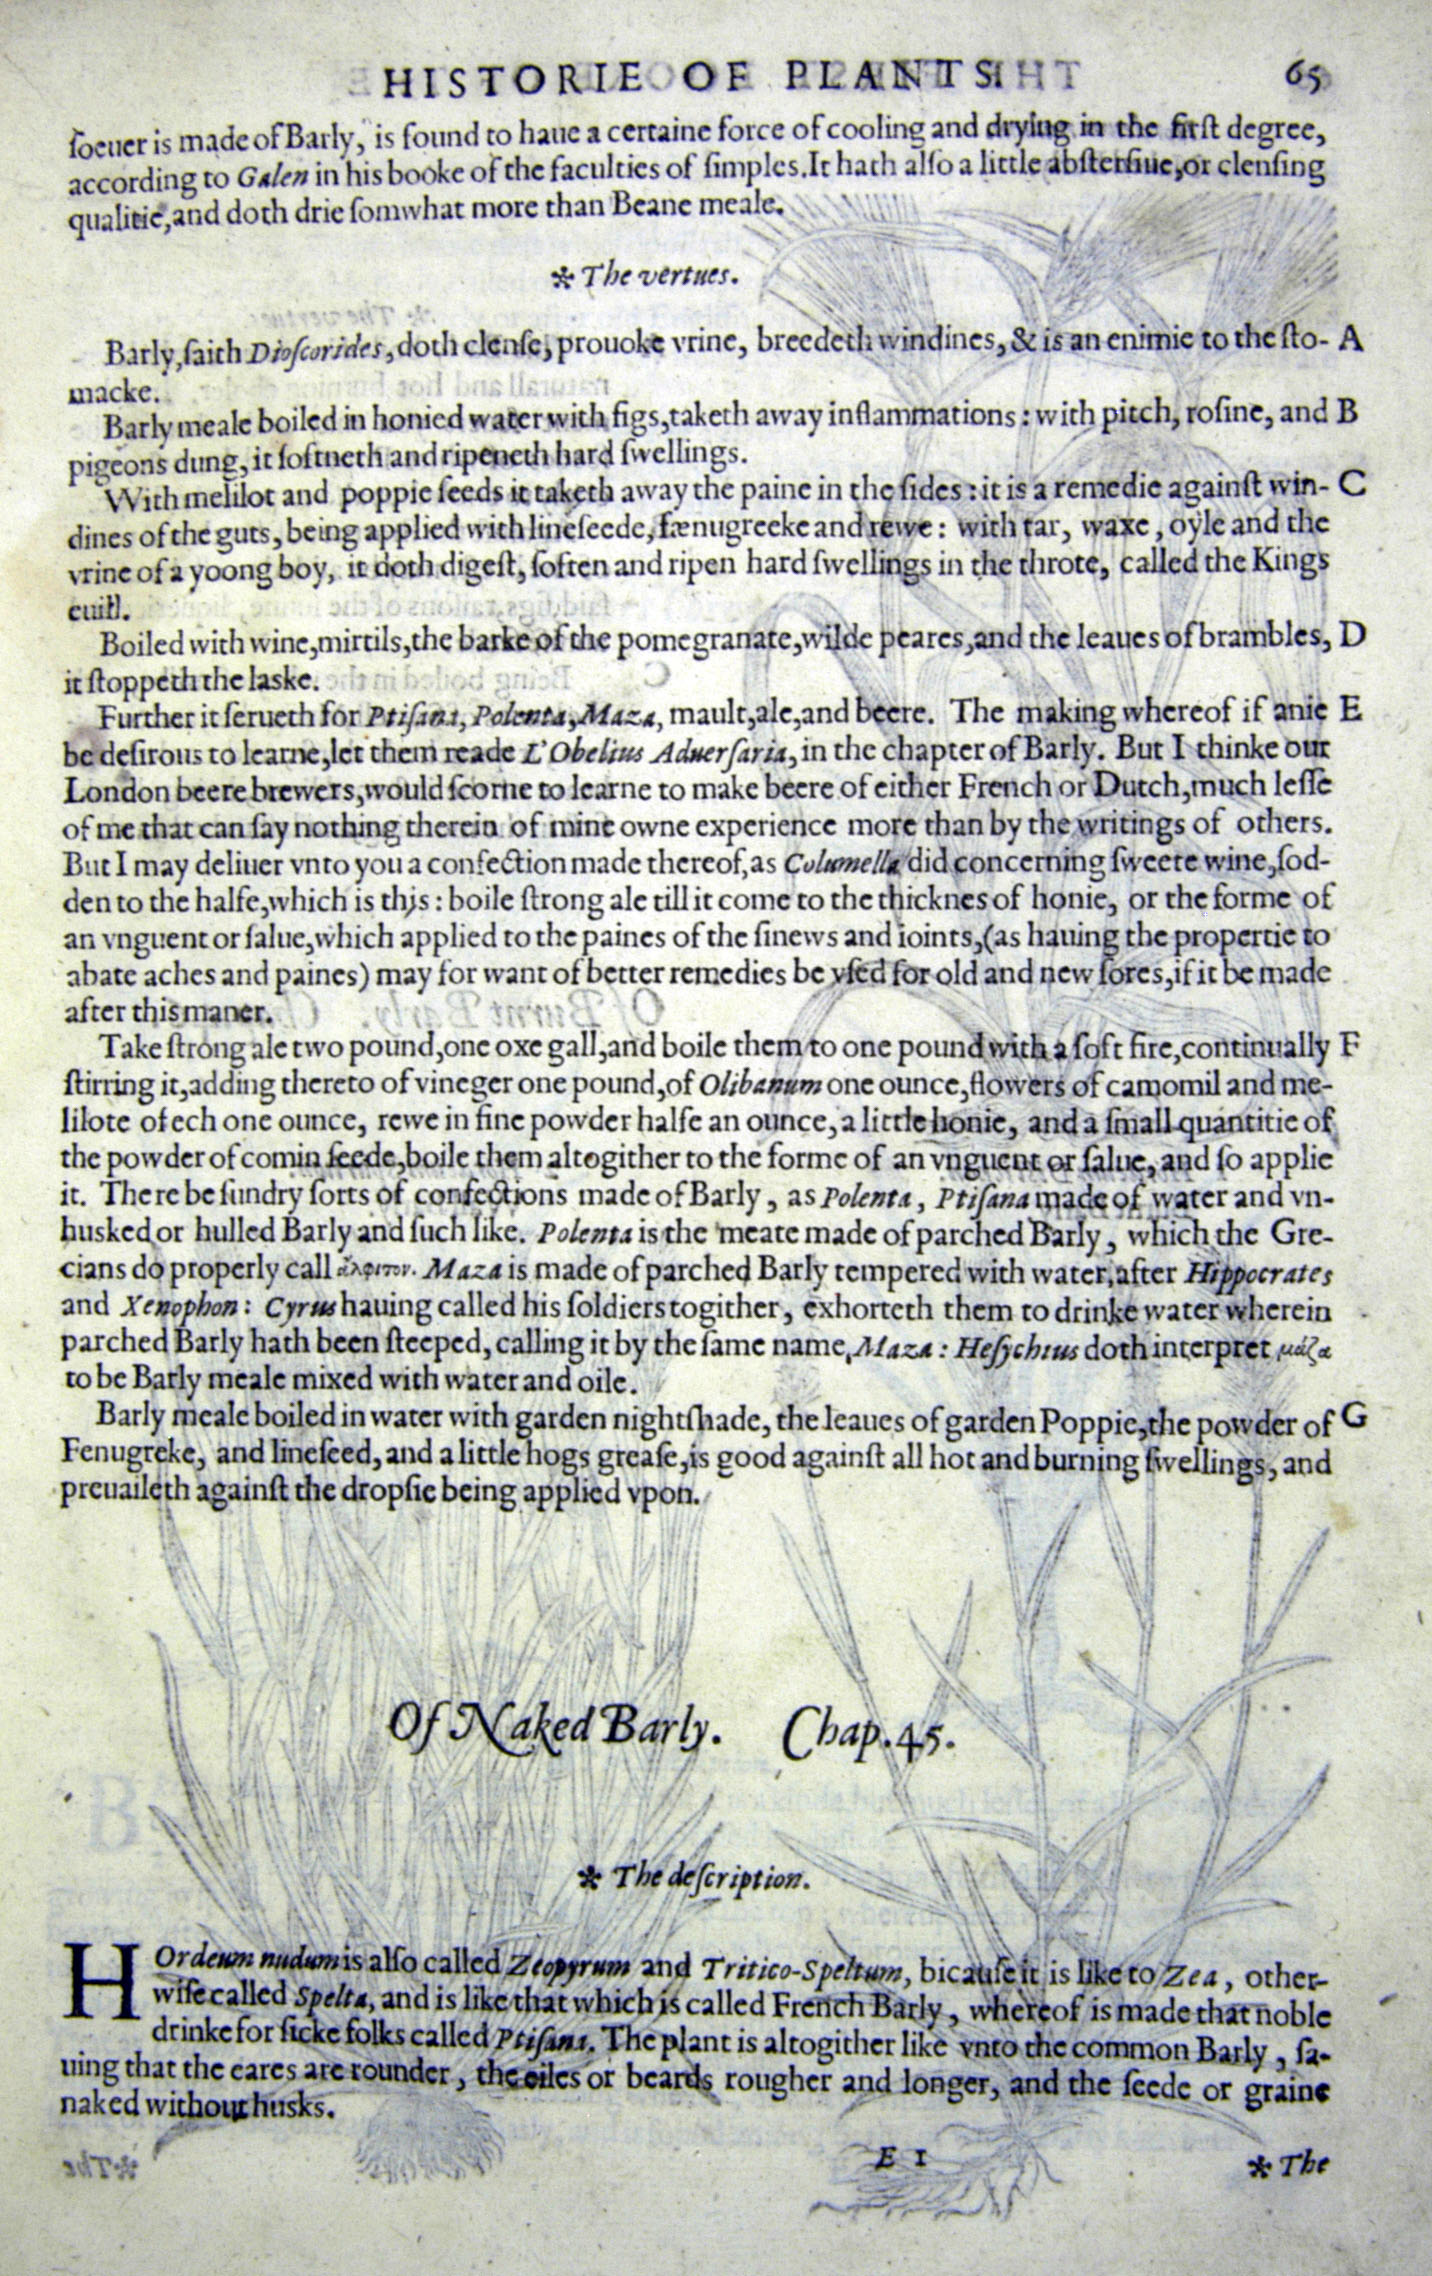 HISTORIE OF PLANTS. 65
ſoeuer is made of Barly, is found to haue a certaine force of cooling and drying in the firſt degree,
according to Galen in his booke of the faculties of ſimples. It hath alſo a little abſterſiue, or clenſing
qualitie, and doth drie ſomwhat more than Beane meale.
✻ The vertues.
Barly, ſaith Dioſcorides, doth clenſe, prouoke vrine, breedeth windines, & is an enimie to the ſto- A
macke.
Barly meale boiled in honied water with figs, taketh away inflammations: with pitch, roſine, and B
pigeons dung, it ſoftneth and ripeneth hard ſwellings.
With melilot and poppie ſeeds it taketh away the paine in the ſides: it is a remedie againſt win- C
dines of the guts, being applied with lineſeede, fænugreeke and rewe: with tar, waxe, oyle and the
vrine of a yoong boy, it doth digeſt, ſoften and ripen hard ſwellings in the throte, called the Kings
euill.
Boiled with wine, mirtils, the barke of the pomegranate, wilde peares, and the leaues of brambles, D
it ſtoppeth the laske.
Further it ſerueth for Ptiſana, Polenta, Maza, mault, ale, and beere. The making whereof if anie E
be deſirous to learne, let them reade L'Obelius Aduerſaria, in the chapter of Barly. But I thinke our
London beere brewers, would ſcorne to learne to make beere of either French or Dutch, much leſſe
of me that can ſay nothing therein of mine owne experience more than by the writings of others.
But I may deliuer vnto you a confection made thereof, as Columella did concerning ſweete wine, ſod-
den to the halfe, which is this: boile ſtrong ale till it come to the thicknes of honie, or the forme of
an vnguent or ſalue, which applied to the paines of the ſinews and ioints, (as hauing the propertie to
abate aches and paines) may for want of better remedies be vſed for old and new ſores, if it be made
after this maner.
Take ſtrong ale two pound, one oxe gall, and boile them to one pound with a ſoft fire, continually F
ſtirring it, adding thereto of vineger one pound, of Olibanum one ounce, flowers of camomil and me-
lilote of ech one ounce, rewe in fine powder halfe an ounce, a little honie, and a ſmall quantitie of
the powder of comin ſeede, boile them altogither to the forme of an vnguent or ſalue, and ſo applie
it. There be ſundry ſorts of confections made of Barly, as Polenta, Ptiſana made of water and vn-
husked or hulled Barly and ſuch like. Polenta is the meate made of parched Barly, which the Gre-
cians do properly call ἄλφιτον. Maza is made of parched Barly tempered with water, after Hippocrates
and Xenophon: Cyrus hauing called his ſoldiers togither, exhorteth them to drinke water wherein
parched Barly hath been ſteeped, calling it by the ſame name, Maza: Heſychius doth interpret μάζα
to be Barly meale mixed with water and oile.
Barly meale boiled in water with garden nightſhade, the leaues of garden Poppie, the powder of G
Fenugreke, and lineſeed, and a little hogs greaſe, is good againſt all hot and burning ſwellings, and
preuaileth againſt the dropſie being applied vpon.
Of Naked Barly. Chap. 45.
✻ The deſcription.
HOrdeum nudum is alſo called Zeopyrum and Tritico-Speltum, bicauſe it is like to Zea, other-
wiſe called Spelta, and is like that which is called French Barly, whereof is made that noble
drinke for ſicke folks called Ptiſana. The plant is altogither like vnto the common Barly, ſa-
uing that the eares are rounder, the eiles or beards rougher and longer, and the ſeede or graine
naked without husks.
E 1 ✻ The